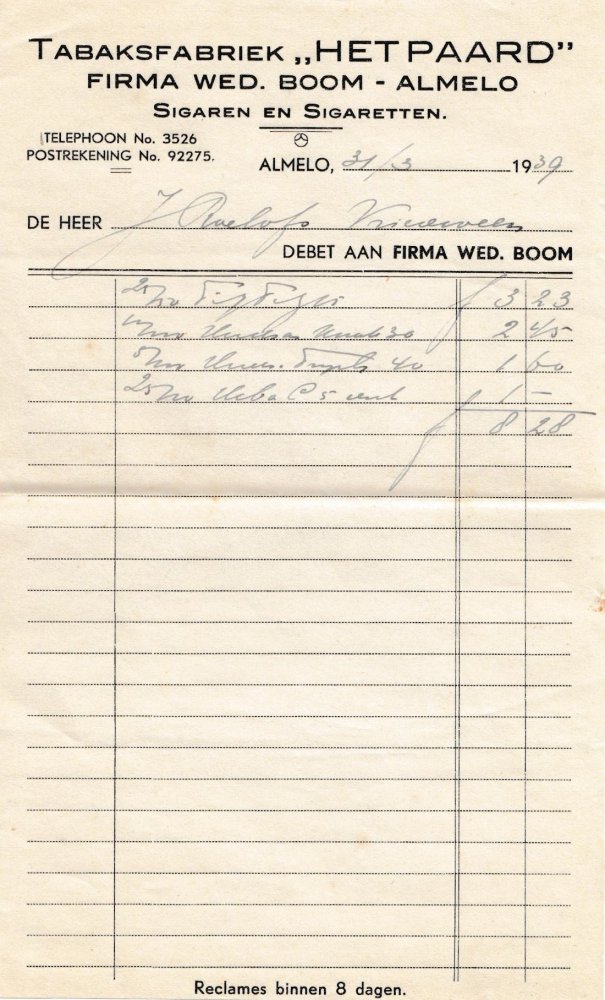 TABAKSFABRIEK „HET PAARD”
FIRMA WED. BOOM - ALMELO
SIGAREN EN SIGARETTEN.
TELEPHOON No. 3526
POSTREKENING No. 92275.
ALMELO, 31/3 1939
DE HEER J Roelofs Vriezeveen
DEBET AAN FIRMA WED. BOOM
f 3 23
30 2 45
40 1 60
25/m 5 cent 1 -
f 8 28
Reclames binnen 8 dagen.